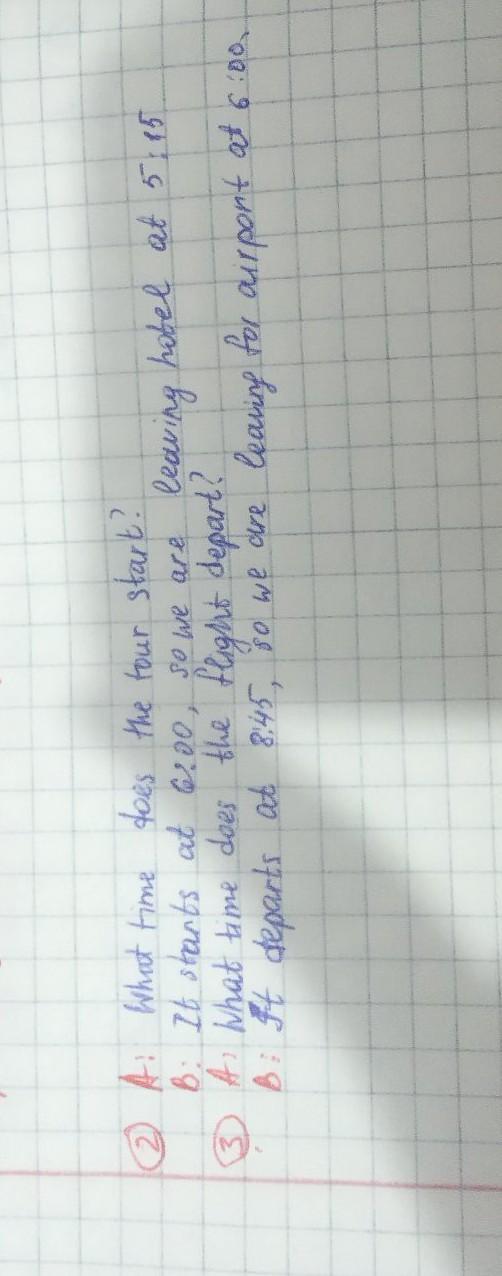 ② A: What time does the tour start?
B: It starts at 6:00, so we are leaving hotel at 5:15
③ A: What time does the flight depart?
B: It departs at 8:45, so we are leaving for airport at 6:00.